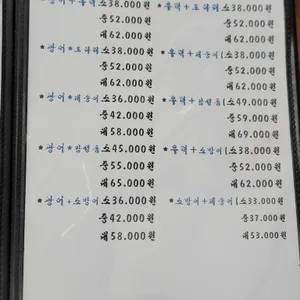 *광어+우럭 소38.000원
중52.000원
대62.000원
*광어+도다리 소38.000원
중52.000원
대62.000원
*광어+래농어 소36.000원
중42.000원
대58.000원
*광어+밥펄돔 소45.000원
중55.000원
대65.000원
*광어+소방어 소36.000원
중42.000원
대58.000원
*우럭+도다리 소38.000원
중52.000원
대62.000원
*우럭+래농어(소38.000원
중52.000원
대62.000원
*우럭+밥펄돔(소49.000원
중59.000원
대69.000원
*우럭+소방어(소38.000원
중52.000원
대62.000원
*소방어+래농어(소33.000원
중37.000원
대53.000원